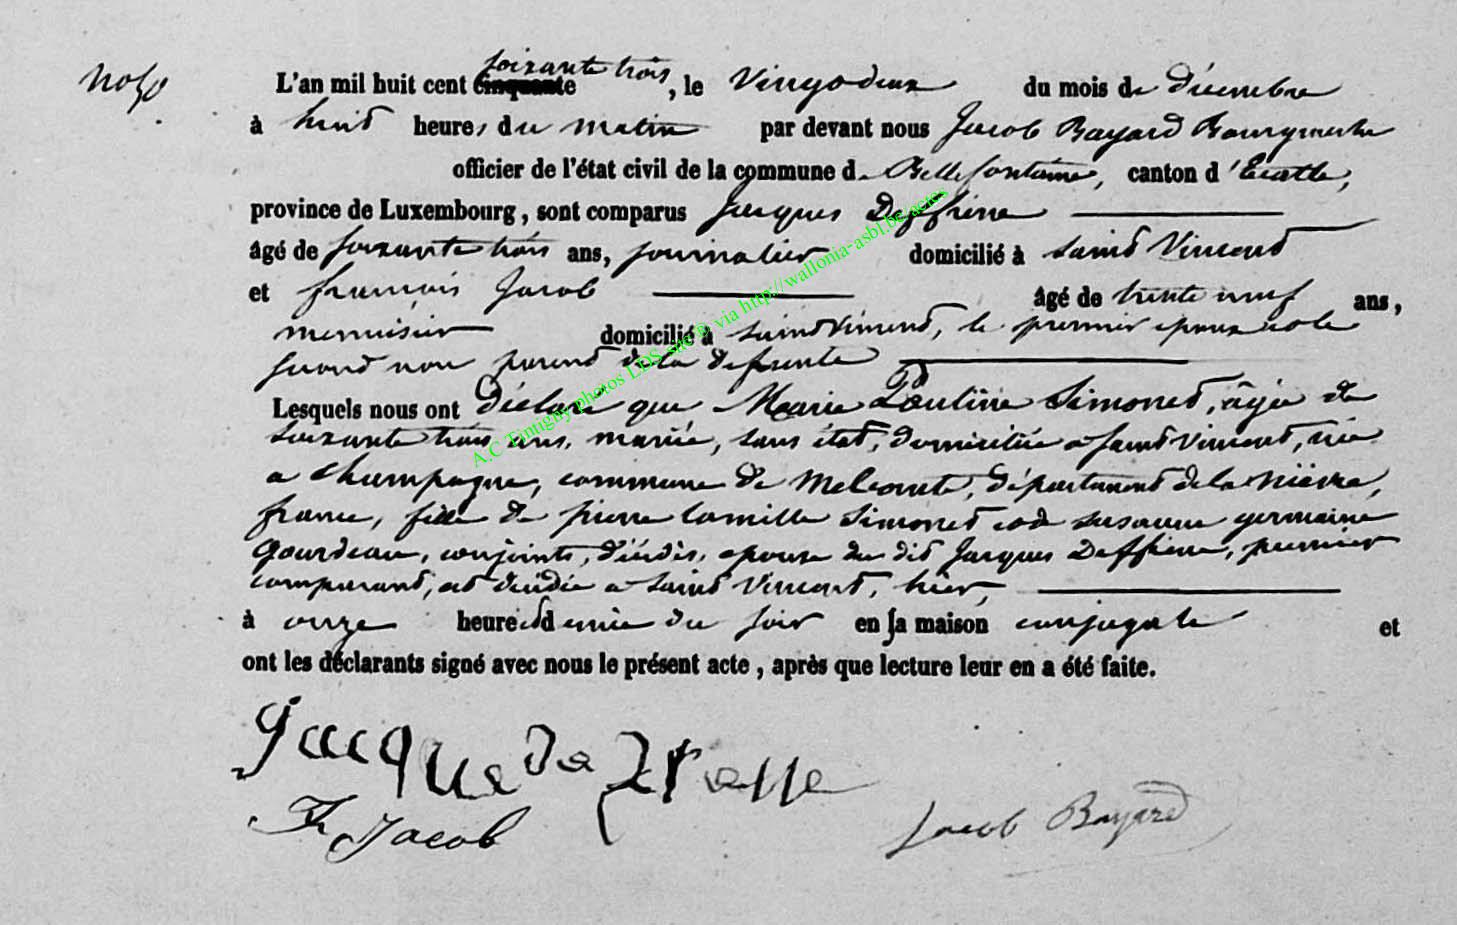 No 50
L'an mil huit cent cinquante soixante trois, le Vingt deux du mois de décembre
à huit heures du matin par devant nous Jacob Bayard Bourgmestre
officier de l'état civil de la commune de Bellefontaine, canton d'Etalle,
province de Luxembourg, sont comparus Jacques Deffrenne
âgé de soixante trois ans, journalier domicilié à Saint Vincent
et françois Jacob âgé de trente neuf ans,
menuisier domicilié à Saint Vincent, le premier epoux et le
second non parent de la defunte
Lesquels nous ont déclaré que Marie Pauline Simonet, âgée de
soixante trois ans, mariée, sans état, domiciliée a Saint Vincent, née
a Champagne, commune de département de la nièvre,
france, fille de pierre Camille Simonet et de susanne germaine
Gourdeau, conjoints, décédés, epouse du dit Jacques Deffrenne, premier
comparant, est décédée a Saint Vincent, hier,
à onze heures et demie du soir en sa maison conjugale et
ont les déclarants signé avec nous le présent acte, après que lecture leur en a été faite.
Jacque
Fr Jacob
Jacob Bayard
A.C Tintigny photos LDS site B via http://wallonia-asbl.be/actes